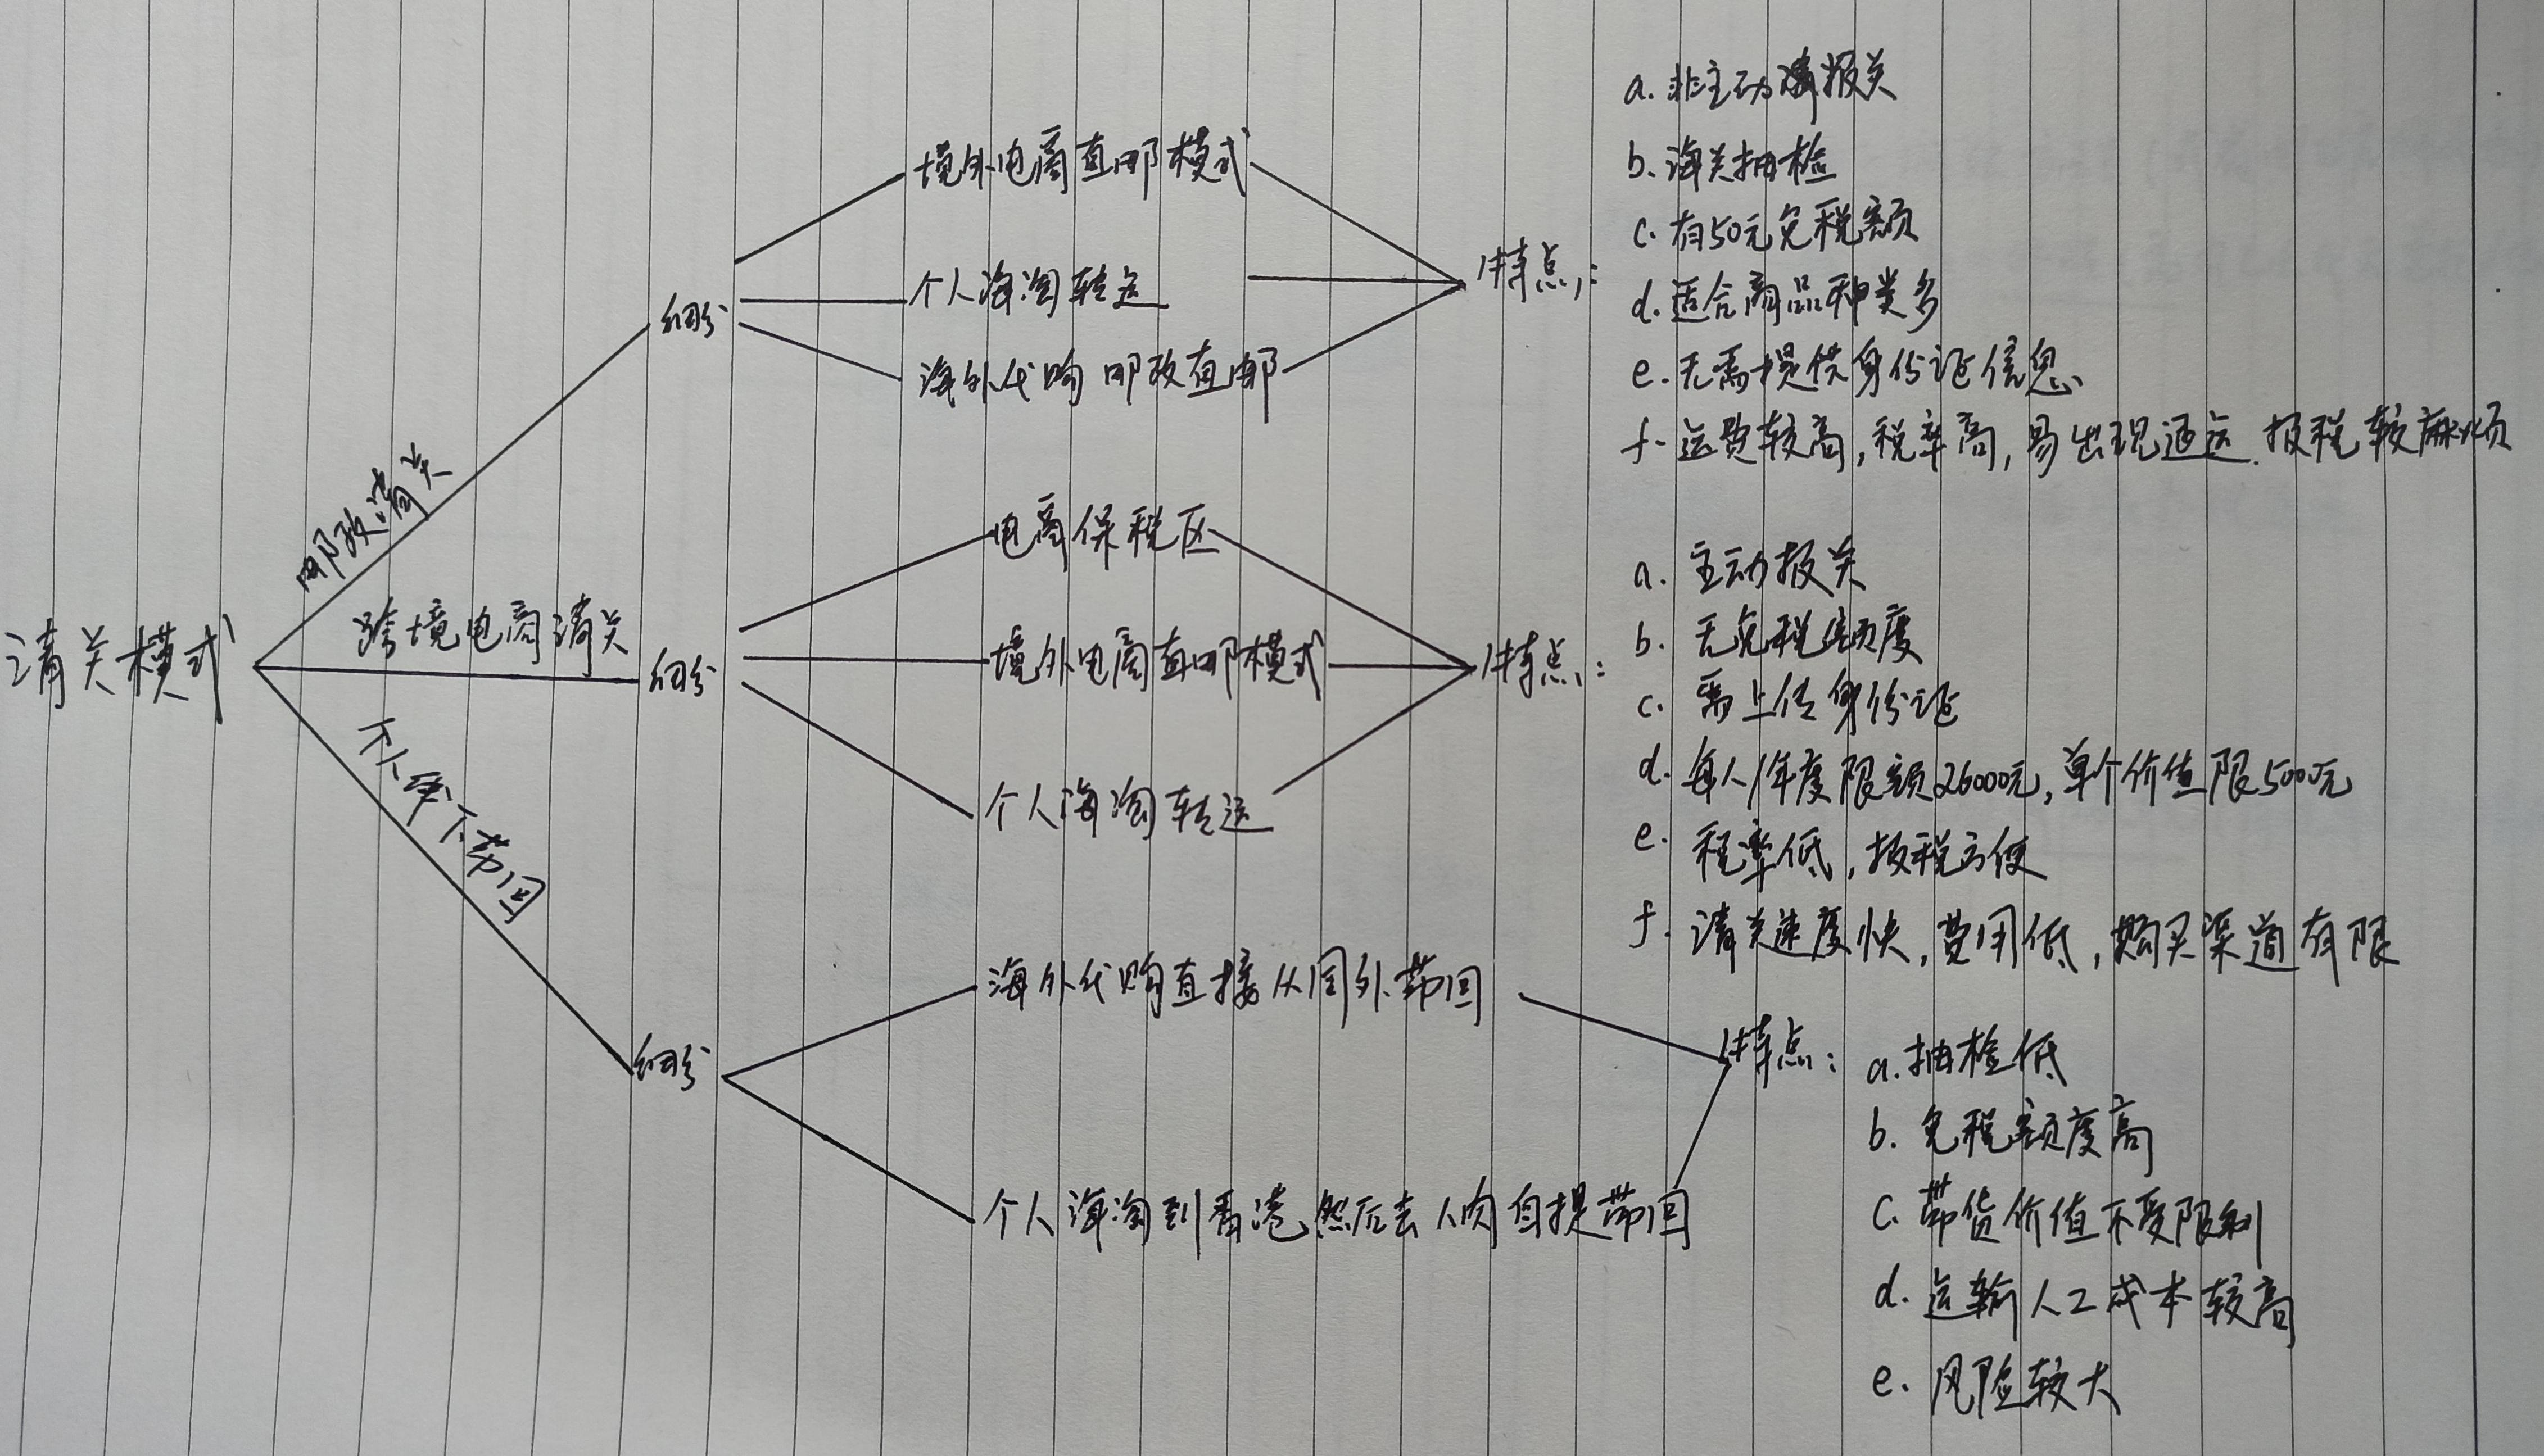 清关模式
邮政清关
细分
境外电商直邮模式
个人海淘转运
海外代购 邮政直邮
特点:
a. 非主动报关
b. 海关抽检
c. 有50元免税额
d. 适合商品种类多
e. 无需提供身份证信息
f. 运费较高,税率高,易出现退运.报税较麻烦
跨境电商清关
细分
电商保税区
境外电商直邮模式
个人海淘转运
特点:
a. 主动报关
b. 无免税额度
c. 需上传身份证
d. 每人/年度限额26000元,单个价值限5000元
e. 税率低,报税方便
f. 清关速度快,费用低,购买渠道有限
带回
细分
海外代购直接从国外带回
个人海淘到香港,然后去人肉自提带回
特点:
a. 抽检低
b. 免税额度高
c. 带货价值不受限制
d. 运输人工成本较高
e. 风险较大